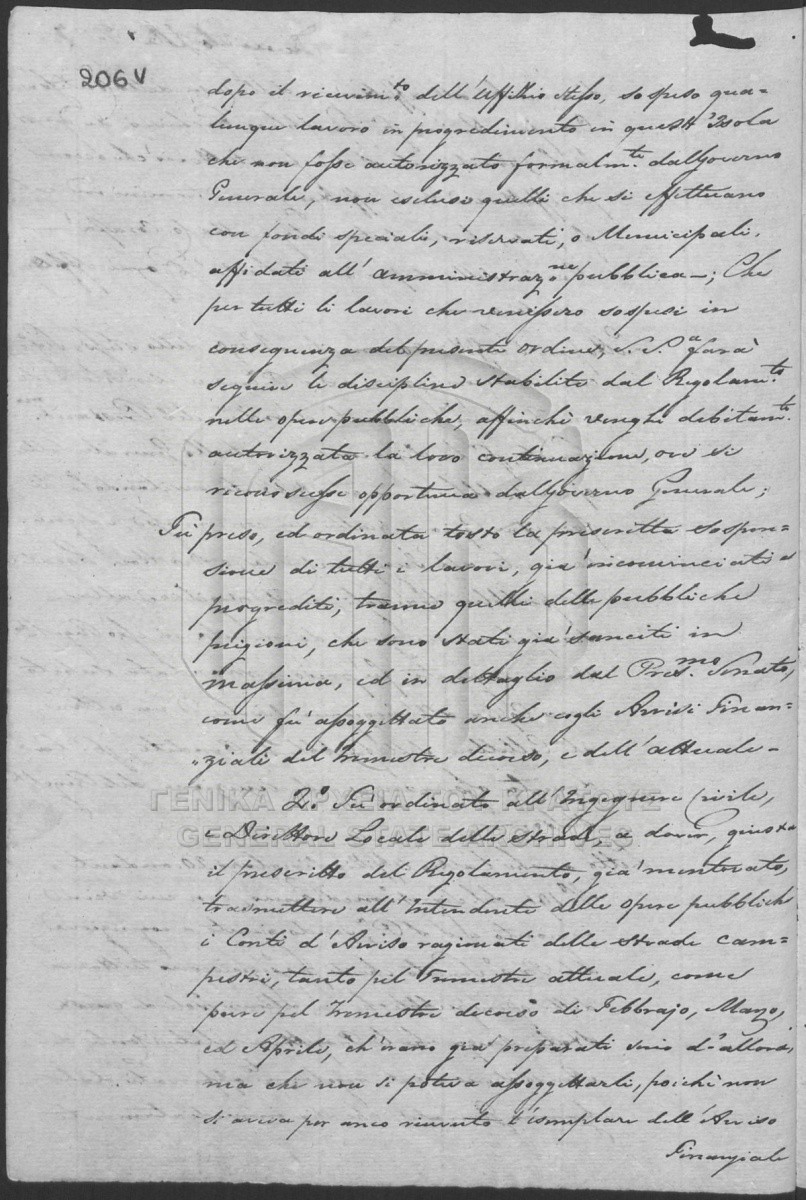 206v
dopo il ricevim.to dell'Uffizio stesso, sospeso qua-
lunque lavoro in progredimento in quest'Isola
che non fosse autorizzato formalm.te dal Governo
Generale, non esclusi quelli che si effettuano
con fondi speciali, riservati, o Municipali,
affidati all'amministraz.ne pubblica —; Che
per tutti li lavori che venissero sospesi in
conseguenza del presente ordine, S. S.a farà
seguire le discipline stabilite dal Regolam.to
nelle opere pubbliche, affinchè venghi debitam.te
autorizzata la loro continuazione, ove si
riconoscesse opportuna dal Governo Generale;
Fù preso, ed ordinata tosto la prescritta sospen-
sione di tutti i lavori, già ricominciati e
progrediti, tranne quelli delle pubbliche
prigioni, che sono stati già sanciti in
massima, ed in dettaglio dal Pres.mo Senato,
come fù assoggettato anche cogli Avvisi Finan-
ziali del Trimestre decorso, e dell'attuale -
2.o Fu ordinato all'Ingegnere Civile,
e Direttore Locale delle strade, a dover, giusta
il prescritto del Regolamento, già mentovato,
trasmettere all'Intendente delle opere pubbliche
i Conti d'Avviso ragionati delle strade cam-
pestri, tanto pel Trimestre attuale, come
pure pel Trimestre decorso di Febbrajo, Marzo,
ed Aprile, ch'erano già preparati sino d'allora,
ma che non si poteva assoggettarli, poichè non
si aveva per anco ricevuto l'esemplare dell'Avviso
Finanziale
ΓΕΝΙΚΑ ΑΡΧΕΙΑ ΤΟΥ ΚΡΑΤΟΥΣ
GENERAL STATE ARCHIVES